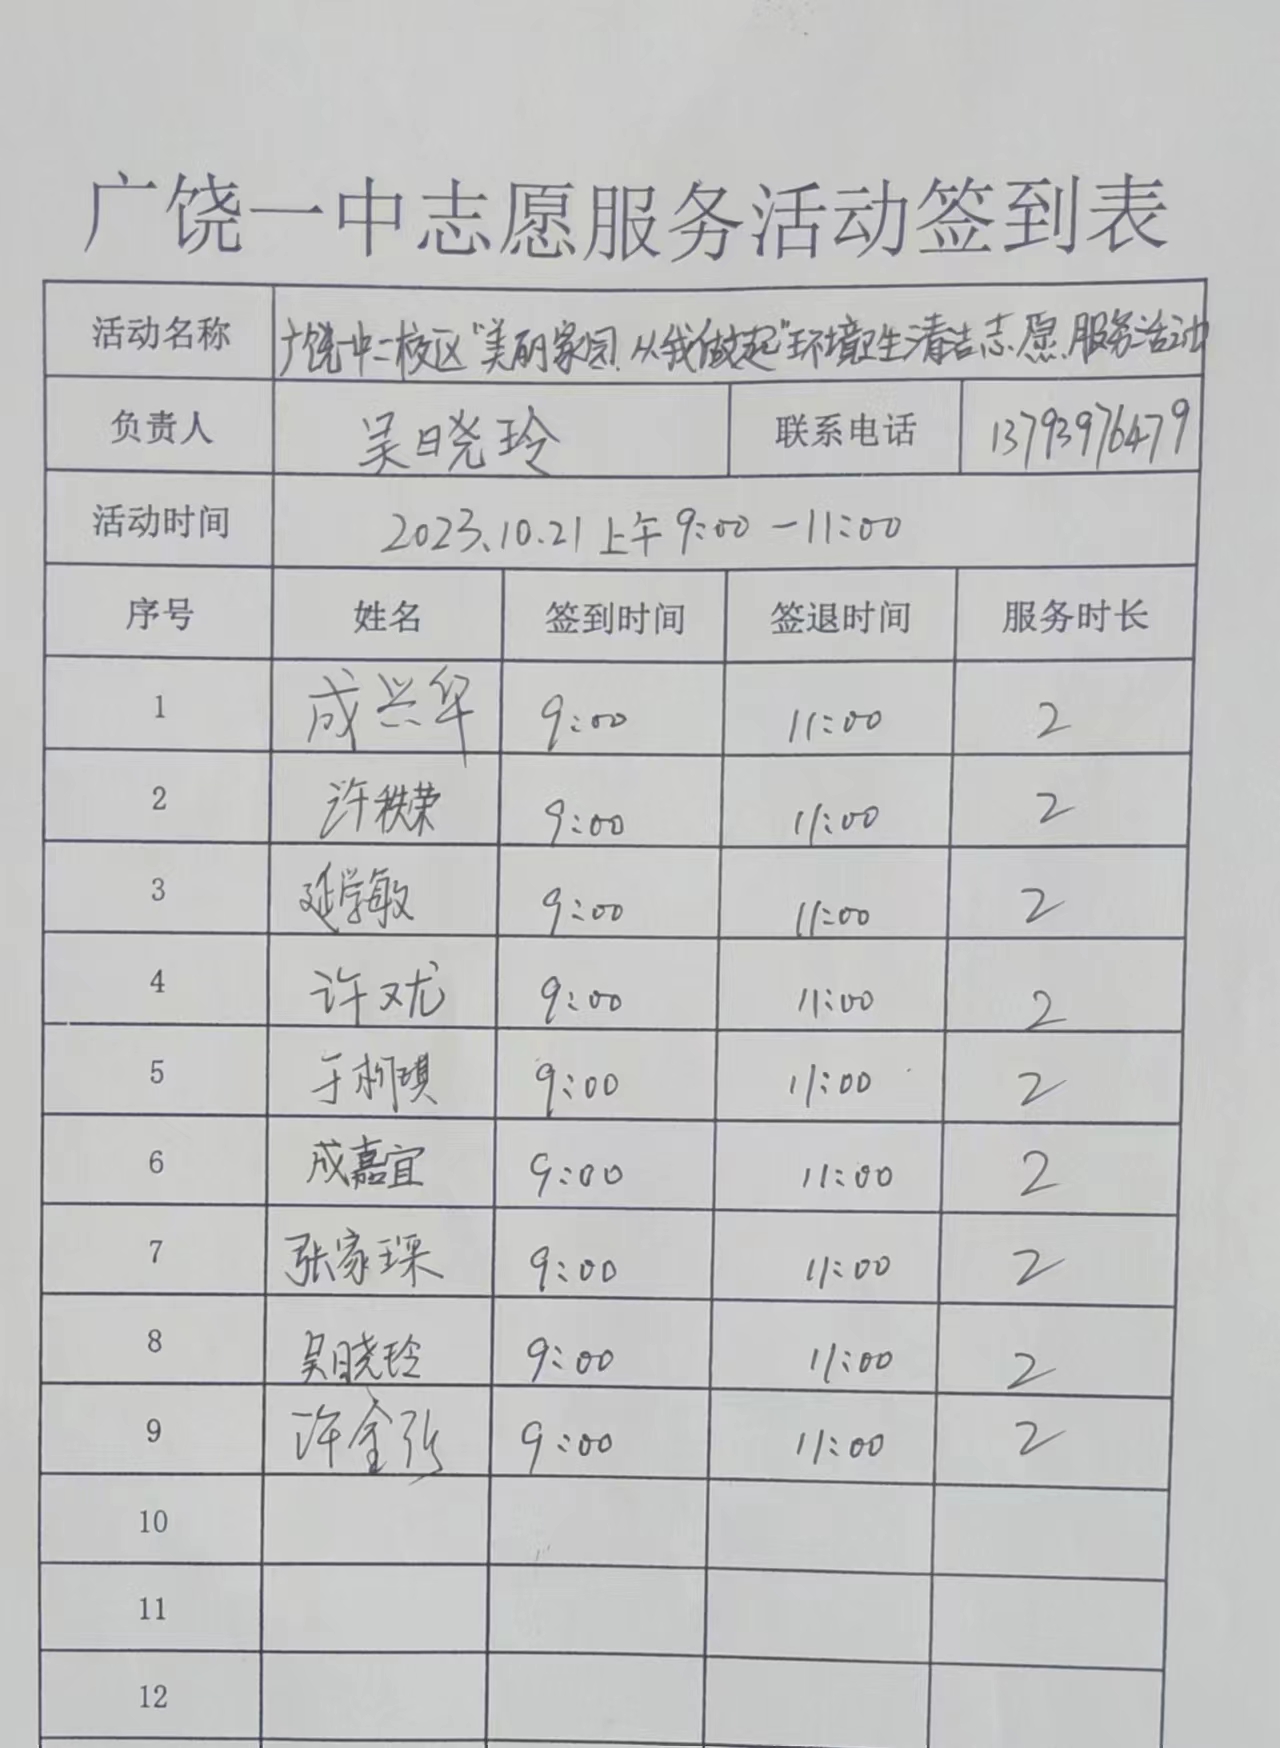 广饶一中志愿服务活动签到表
活动名称 广饶一中二校区“美丽家园，从我做起”环境卫生清洁志愿服务活动
负责人 吴晓玲 联系电话 13793976479
活动时间 2023.10.21 上午 9:00 — 11:00
序号 姓名 签到时间 签退时间 服务时长
1 成兴华 9:00 11:00 2
2 许秩荣 9:00 11:00 2
3 延学敏 9:00 11:00 2
4 许又尤 9:00 11:00 2
5 于柯琪 9:00 11:00 2
6 成嘉宜 9:00 11:00 2
7 张家琛 9:00 11:00 2
8 吴晓玲 9:00 11:00 2
9 许金 9:00 11:00 2
10
11
12